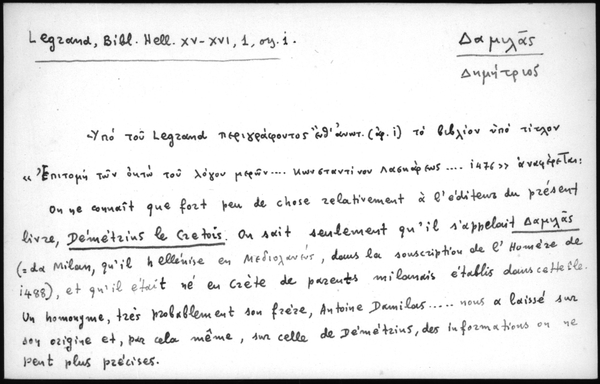 Legrand, Bibl. Hell. XV-XVI, 1, σς. 1.
Δαμιλᾶς
Δημήτριος
Ὑπό τοῦ Legrand περιγράφοντος ἔνθ' ἀνωτ. (ἀρ. 1) τό βιβλίον ὑπό τίτλον
«Ἐπιτομή τῶν ὀκτώ τοῦ λόγου μερῶν.... Κωνσταντίνου Λασκάρεως.... 1476» ἀναφέρεται:
On ne connaît que fort peu de chose relativement à l'éditeur du présent
livre, Démétrius le Crétois. On sait seulement qu'il s'appelait Δαμιλᾶς
(= da Milan, qu'il hellénise en Μεδιολανεύς, dans la souscription de l'Homère de
1488), et qu'il était né en Crète de parents milanais établis dans cette île.
Un homonyme, très probablement son frère, Antoine Damilas..... nous a laissé sur
son origine et, par cela même, sur celle de Démétrius, des informations on ne
peut plus précises.